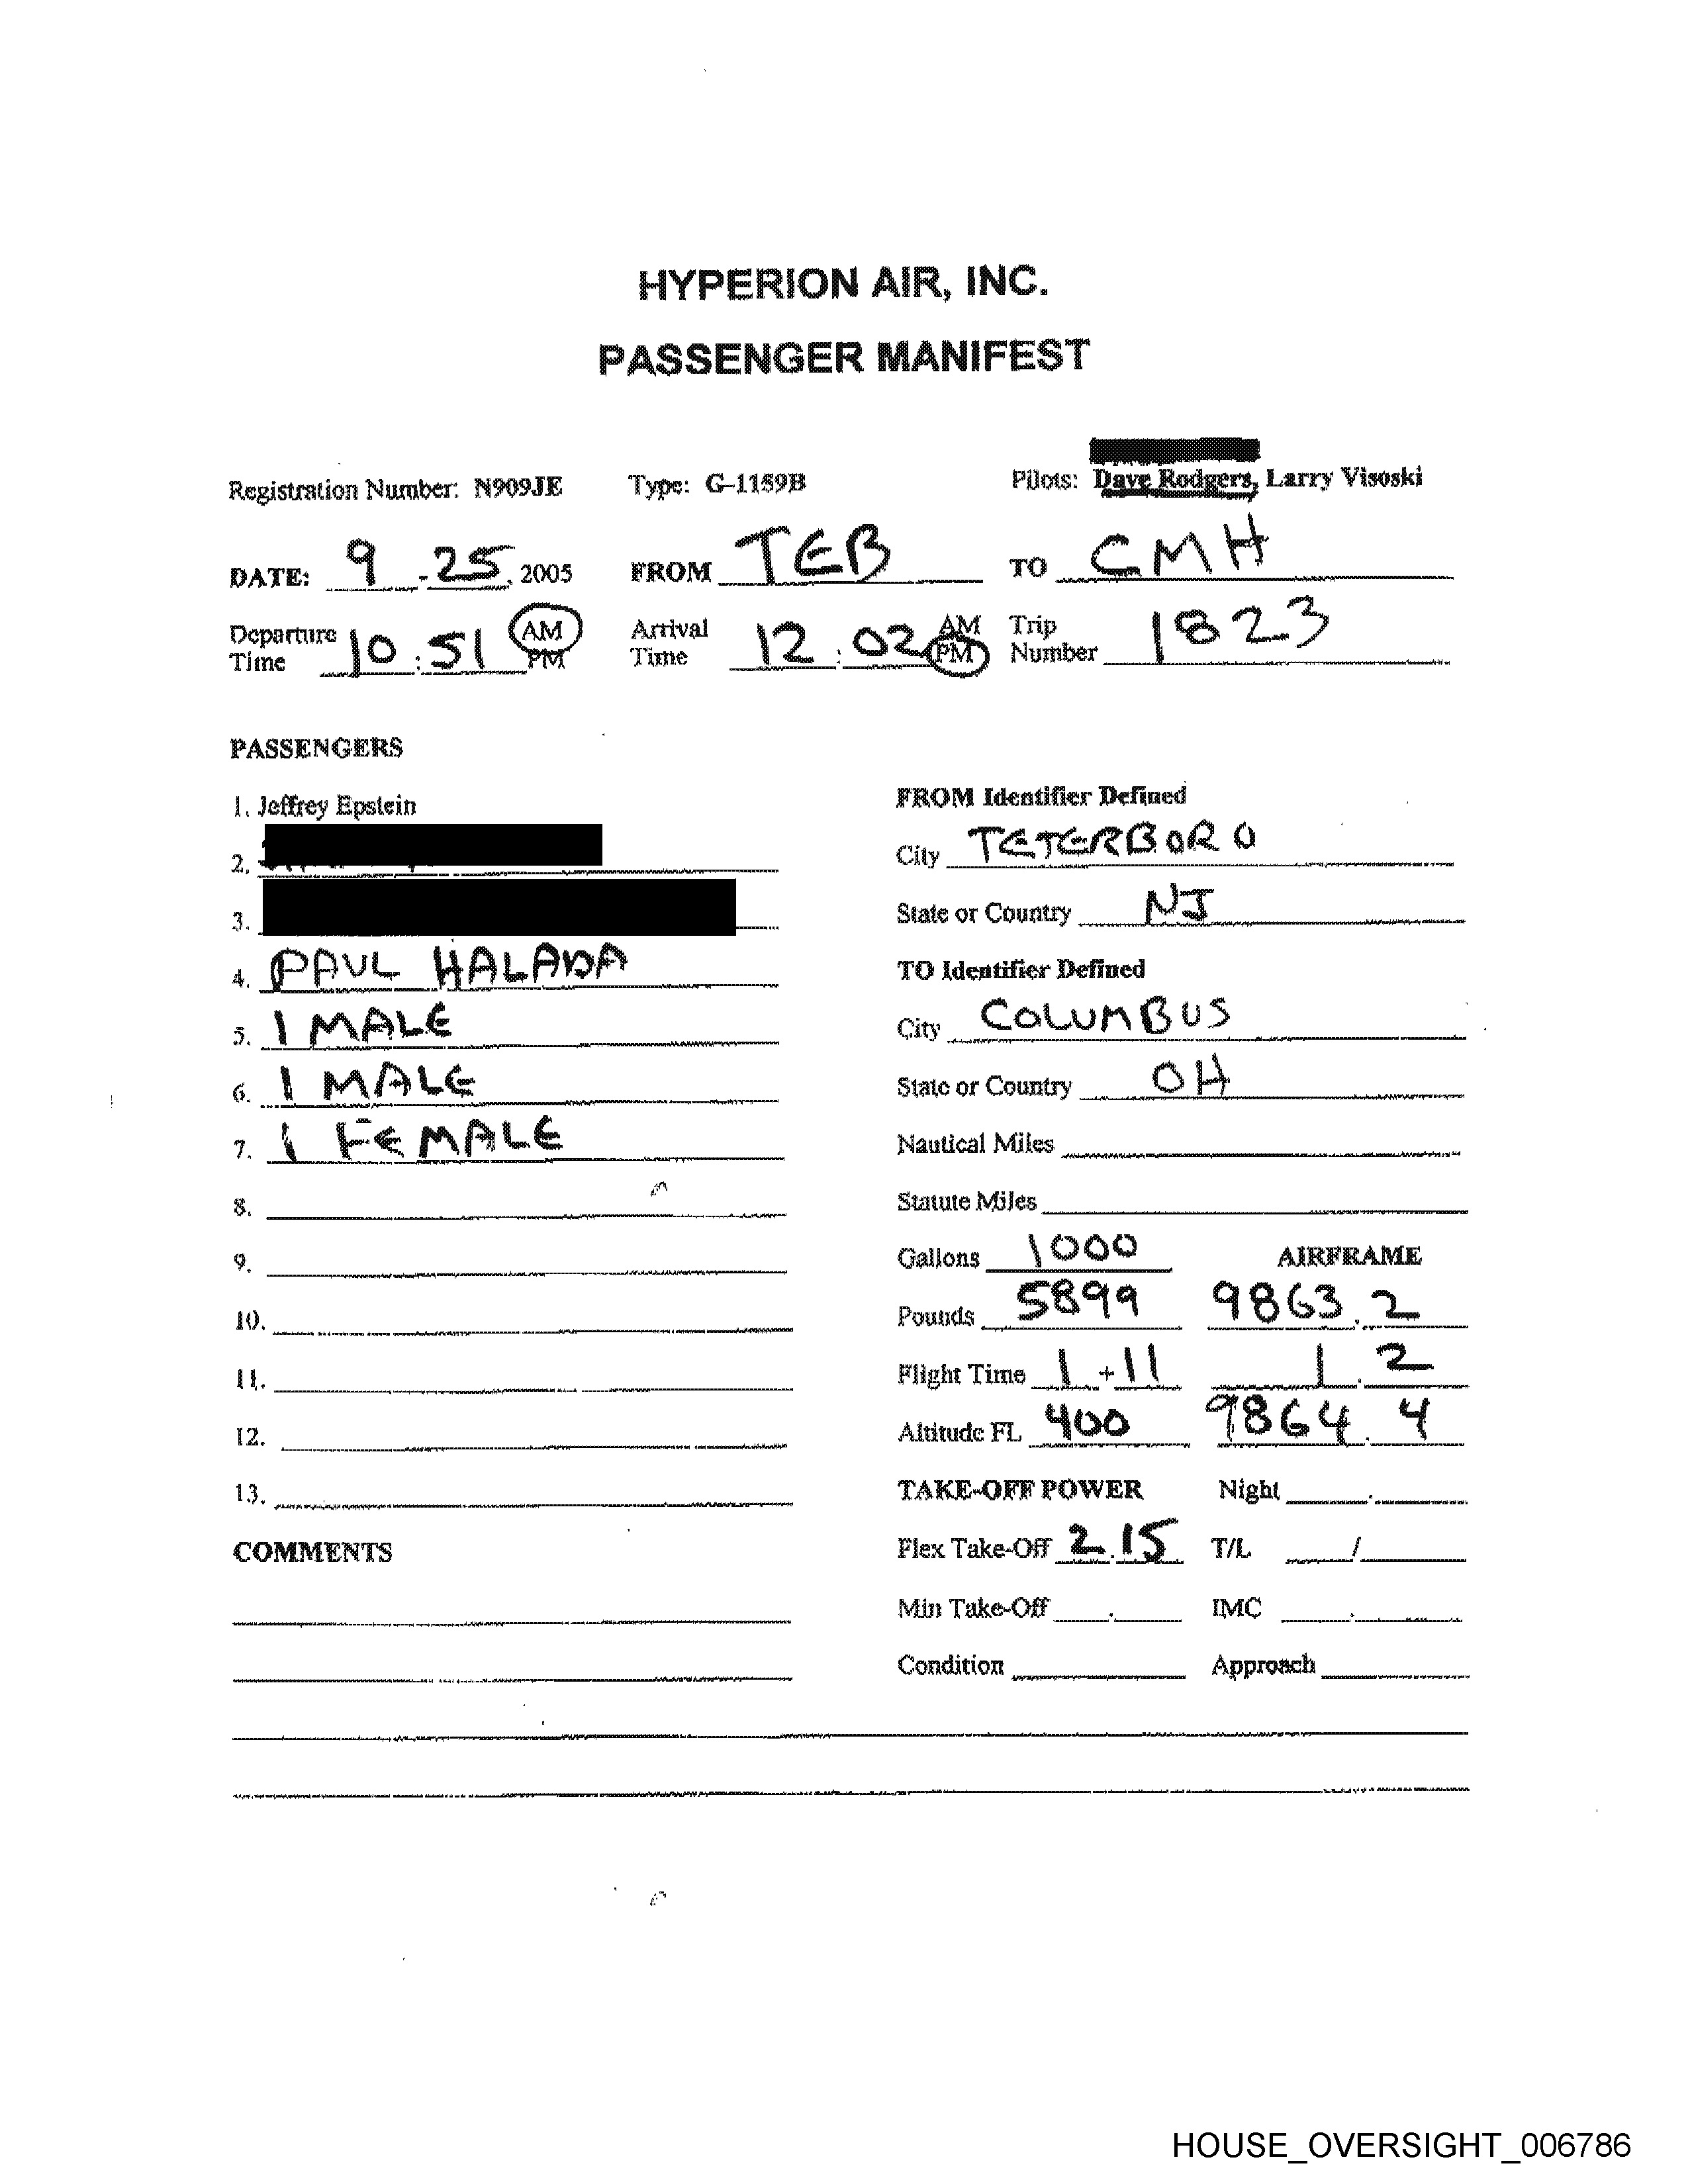 HYPERION AIR, INC.
PASSENGER MANIFEST
Registration Number: N909JE Type: G-1159B Pilots: Dave Rodgers, Larry Visoski
DATE: 9 - 25, 2005 FROM TEB TO CMH
Departure Time 10:51 AM PM Arrival Time 12:02 AM PM Trip Number 1823
PASSENGERS
1. Jeffrey Epstein
2.
3.
4. PAUL HALADA
5. 1 MALE
6. 1 MALE
7. 1 FEMALE
8.
9.
10.
11.
12.
13.
COMMENTS
FROM Identifier Defined
City TETERBORO
State or Country NJ
TO Identifier Defined
City COLUMBUS
State or Country OH
Nautical Miles
Statute Miles
Gallons 1000 AIRFRAME
Pounds 5899 9863.2
Flight Time 1+11 1.2
Altitude FL 400 9864.4
TAKE-OFF POWER Night .
Flex Take-Off 2.15 T/L /
Min Take-Off . IMC .
Condition Approach
HOUSE_OVERSIGHT_006786